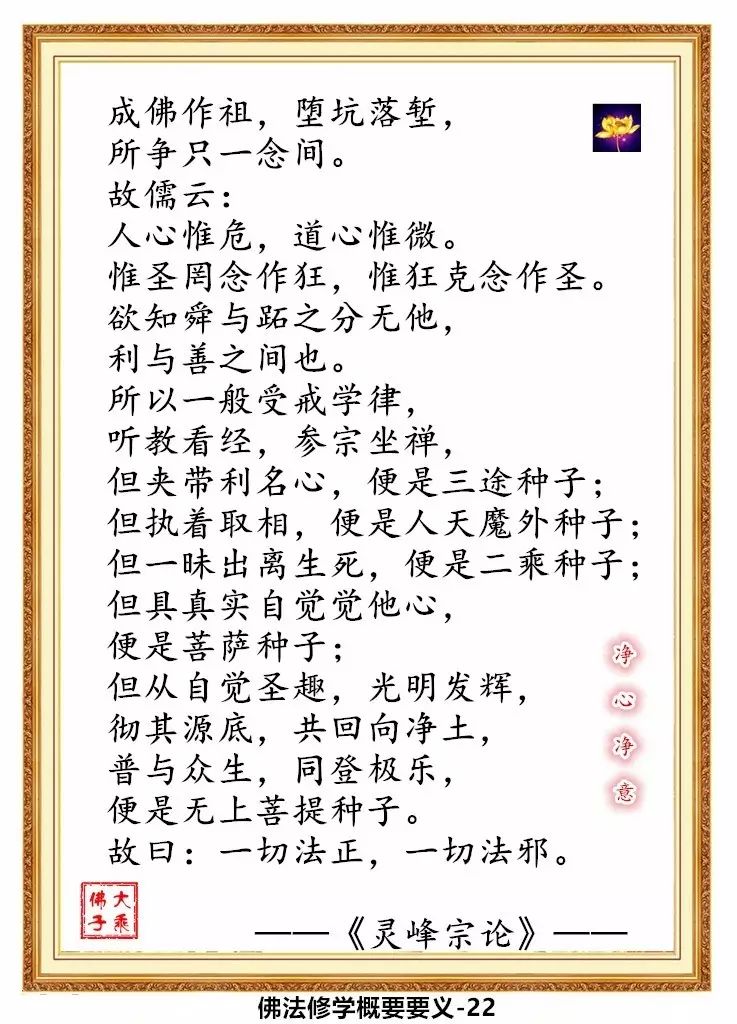 成佛作祖，堕坑落堑，
所争只一念间。
故儒云：
人心惟危，道心惟微。
惟圣罔念作狂，惟狂克念作圣。
欲知舜与跖之分无他，
利与善之间也。
所以一般受戒学律，
听教看经，参宗坐禅，
但夹带利名心，便是三途种子；
但执着取相，便是人天魔外种子；
但一昧出离生死，便是二乘种子；
但具真实自觉觉他心，
便是菩萨种子；
但从自觉圣趣，光明发辉，
彻其源底，共回向净土，
普与众生，同登极乐，
便是无上菩提种子。
故曰：一切法正，一切法邪。
净心净意
大乘
佛子
——《灵峰宗论》——
佛法修学概要要义-22